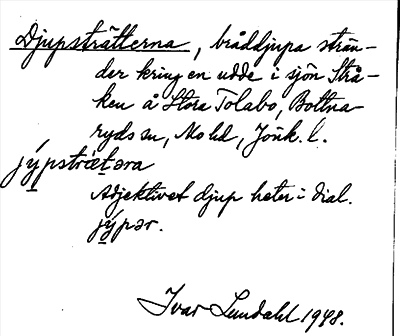 Djupsträtterna, bråddjupa strän-
der kring en udde i sjön Strå-
ken å Stora Tolabo, Bottna-
ryds sn, Mo hd, Jönk. l.
jýpstrietəra
Adjektivet djup heter i dial.
jýpər.
Ivar Lundahl 1948.